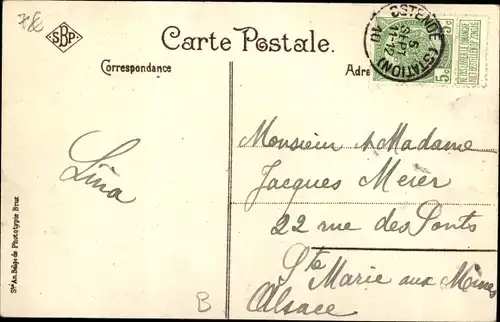 SBP
Carte Postale.
Correspondance
Adre
OSTENDE (STATION)
5
SEPT
11-12
10
5c 5c
Lina
Monsieur & Madame
Jacques Meier
22 rue des Ponts
Ste Marie aux Mines
Alsace
B
Sté An. Belge de Phototypie Brux